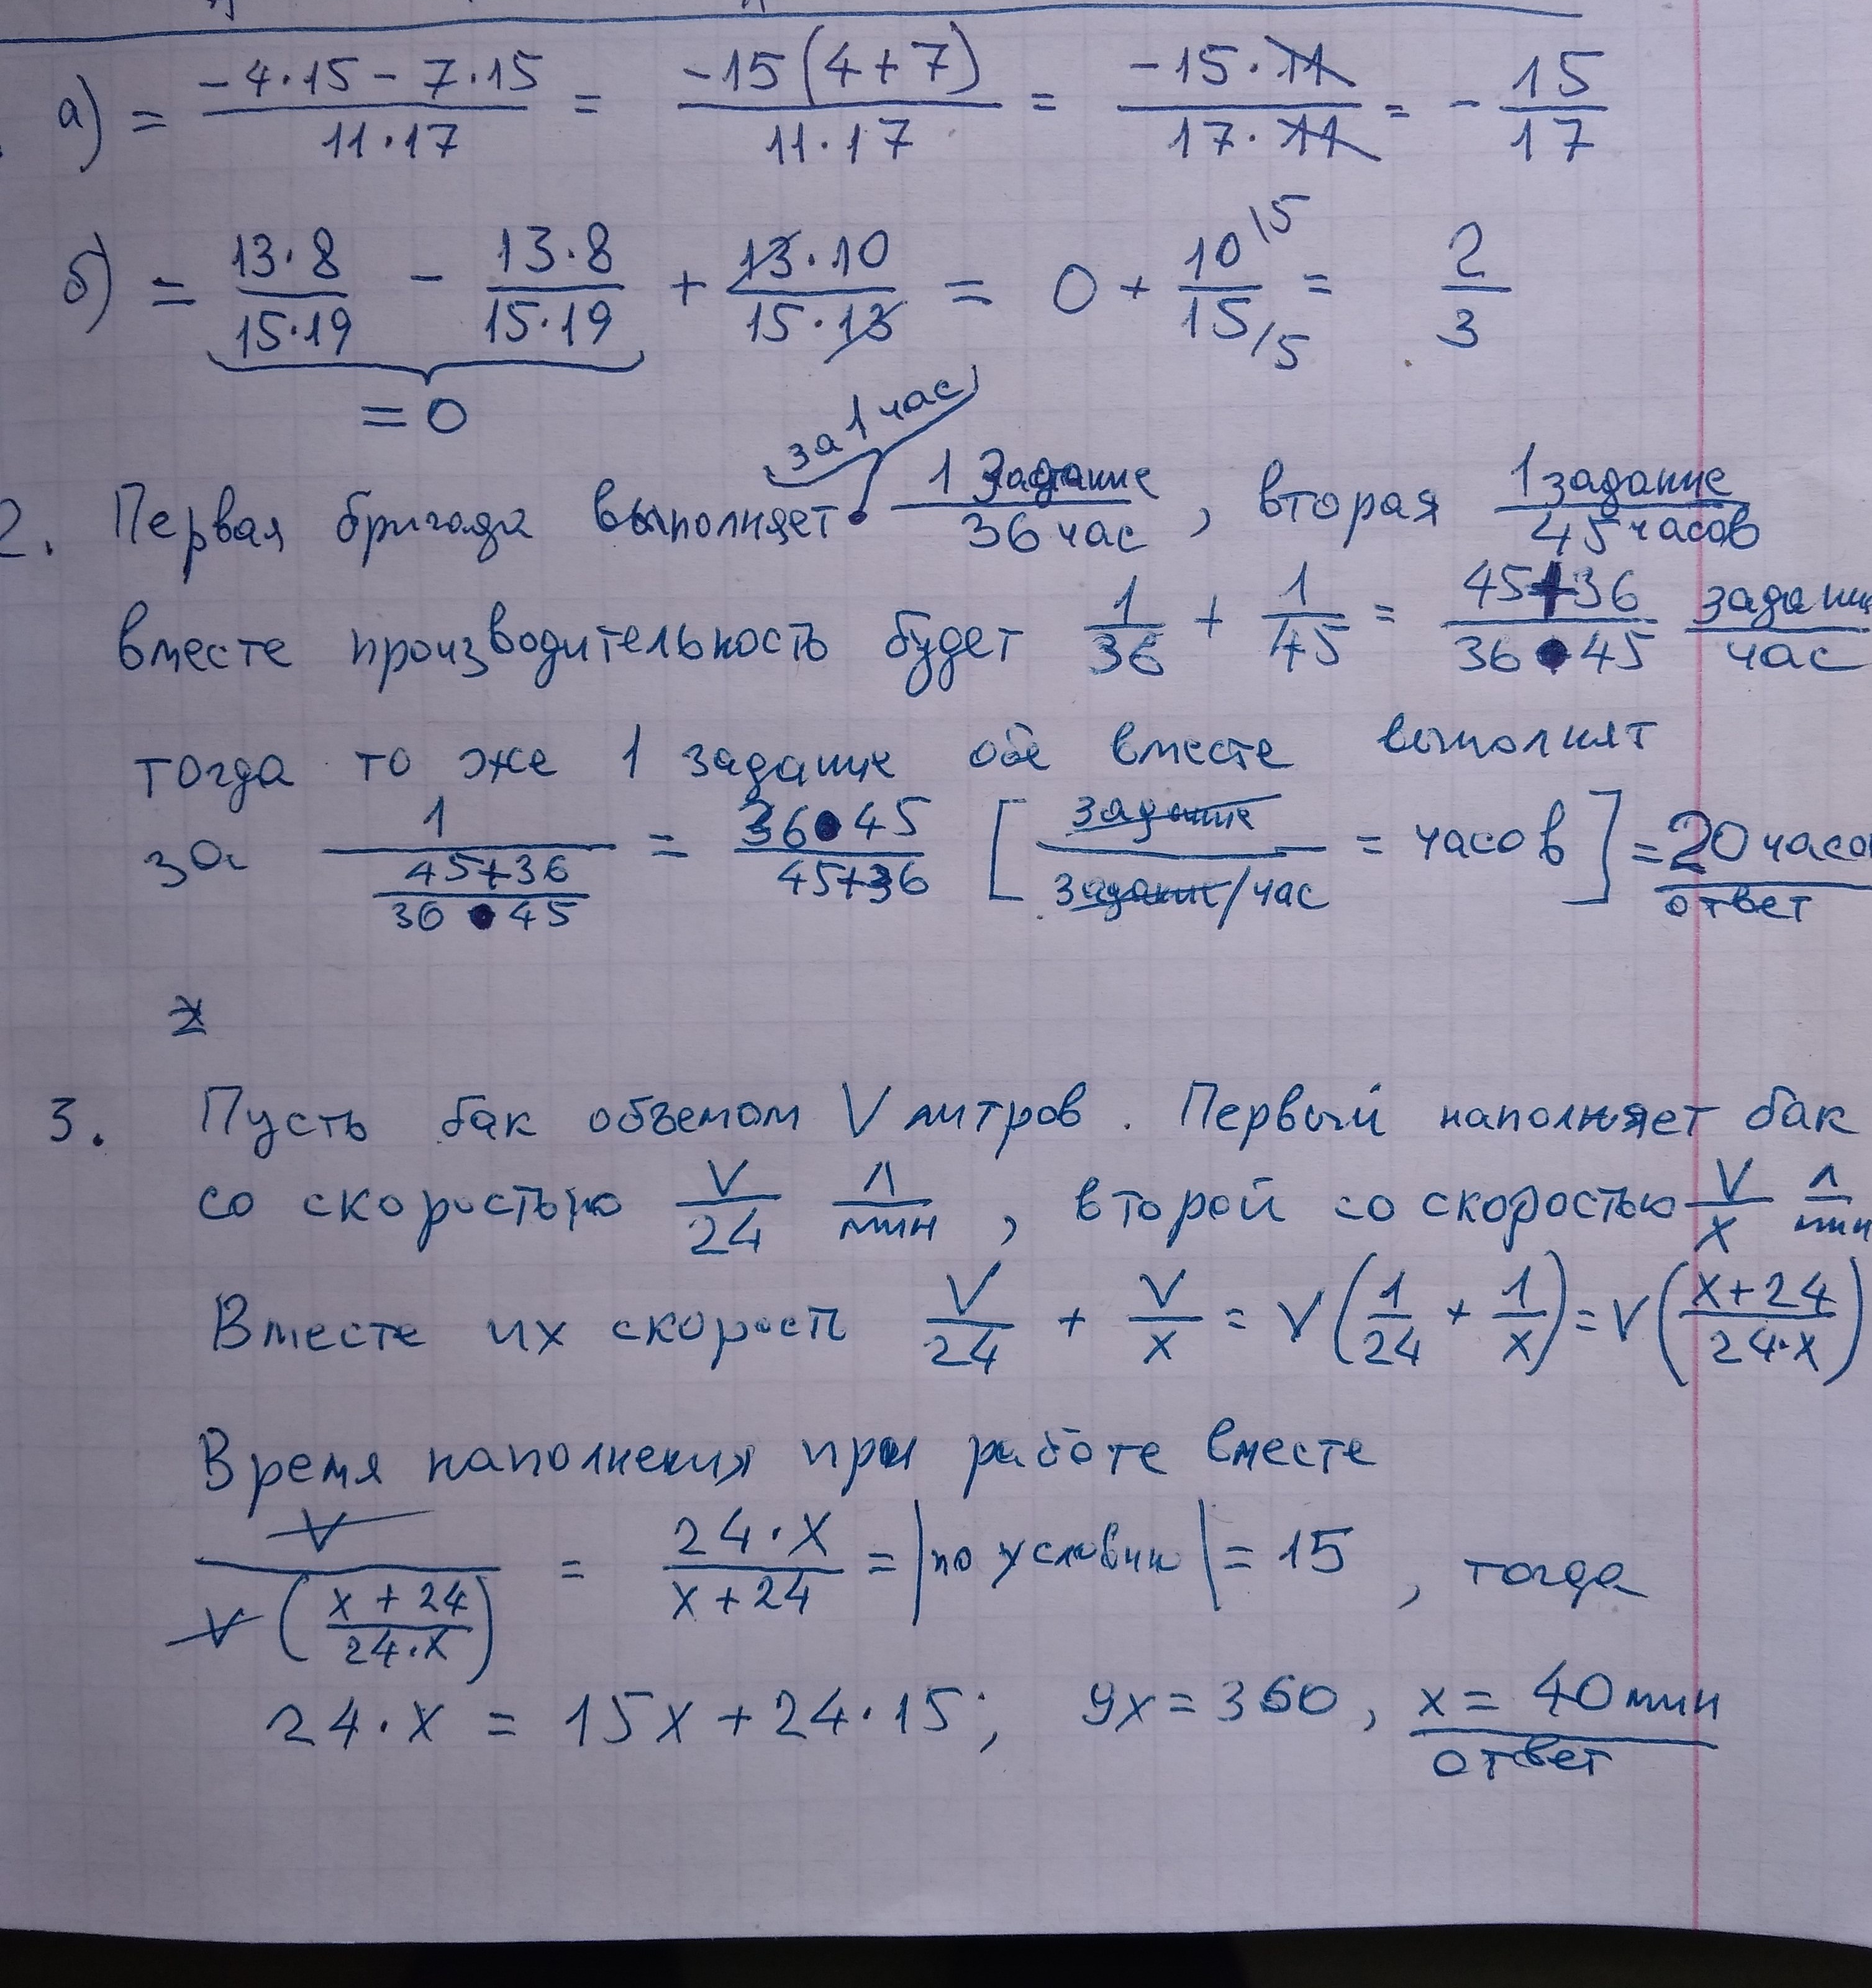 а) = (-4·15 - 7·15)/(11·17) = (-15(4+7))/(11·17) = (-15·11)/(17·11) = - 15/17
б) = (13·8)/(15·19) - (13·8)/(15·19) + (13·10)/(15·13) = 0 + 10/15 /5 /5 = 2/3
= 0
за 1 час
2. Первая бригада выполняет (1 задание)/(36 час), вторая (1 задание)/(45 часов)
вместе производительность будет 1/36 + 1/45 = (45+36)/(36·45) задани/час
тогда то же 1 задание обе вместе выполнят
за 1/((45+36)/(36·45)) = (36·45)/(45+36) [задание/(задание/час) = часов] = 20 часо
ответ
3. Пусть бак объемом V литров. Первый наполняет бак
со скоростью V/24 л/мин, второй со скоростью V/x л/мин
Вместе их скорость V/24 + V/x = V(1/24 + 1/x) = V((x+24)/(24·x))
Время наполнения при работе вместе
V/(V((x+24)/(24·x))) = (24·x)/(x+24) = |по условию| = 15, тогда
24·x = 15x + 24·15; 9x = 360, x = 40 мин
ответ